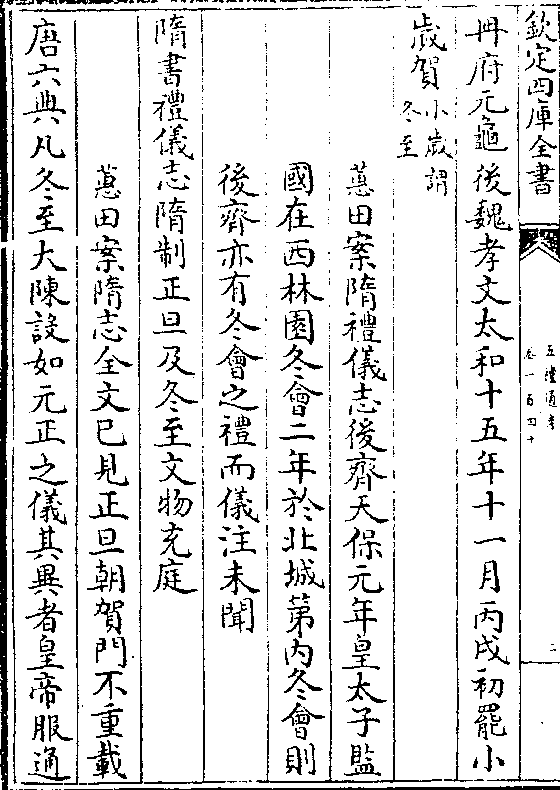 欽定四庫全書
五禮通考
卷一百四十
二
冊府元龜後魏孝文太和十五年十一月丙戌初罷小
歲賀小歲謂
冬至
蕙田案隋禮儀志後齊天保元年皇太子監
國在西林園冬會二年於北城第内冬會則
後齊亦有冬會之禮而儀注未聞
隋書禮儀志隋制正旦及冬至文物充庭
蕙田案隋志全文已見正旦朝賀門不重載
唐六典凡冬至大陳設如元正之儀其異者皇帝服通